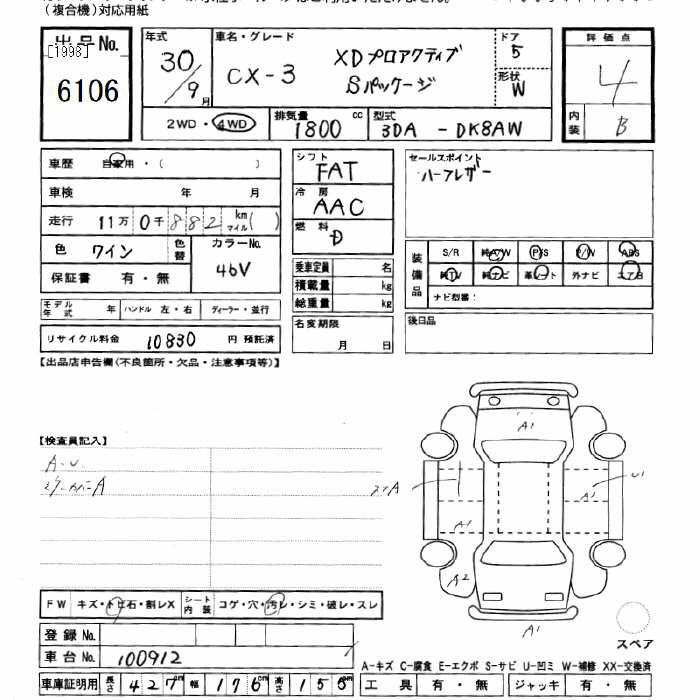 (複合機)対応用紙
出品No.
[1998]
6106
年式 30/9月
車名・グレード
CX-3 XDプロアクティブ
Sパッケージ
ドア 5
形状 W
評価点
4
内装 B
2WD・4WD
排気量 1800 cc
型式 3DA - DK8AW
車歴 自家用・( )
車検 年 月
走行 11万 0千 882 km マイル( )
色 ワイン 色替
カラーNo. 46V
保証書 有・無
モデル年式 年 ハンドル 左・右 ディーラー・並行
リサイクル料金 10830 円 預託済
シフト FAT
冷房 AAC
燃料 D
乗車定員 名
積載量 kg
総重量 kg
名変期限
月 日
セールスポイント
ハーフレザー
装備品 S/R 純A/W P/S P/W ABS
純TV 純ナビ 革シート 外ナビ エアB
ナビ型番:
後日品
【出品店申告欄(不良箇所・欠品・注意事項等)】
【検査員記入】
A.U.
A
A1
A
A1
U1
A1
A1
A2
A1
FW キズ・トビ石・割レX シート内装 コゲ・穴・汚レ・シミ・破レ・スレ
登録No.
車台No. 100912
スペア
A-キズ C-腐食 E-エクボ S-サビ U-凹ミ W-補修 XX-交換済
車庫証明用 長さ 427 幅 176 高さ 155
工具 有・無 ジャッキ 有・無